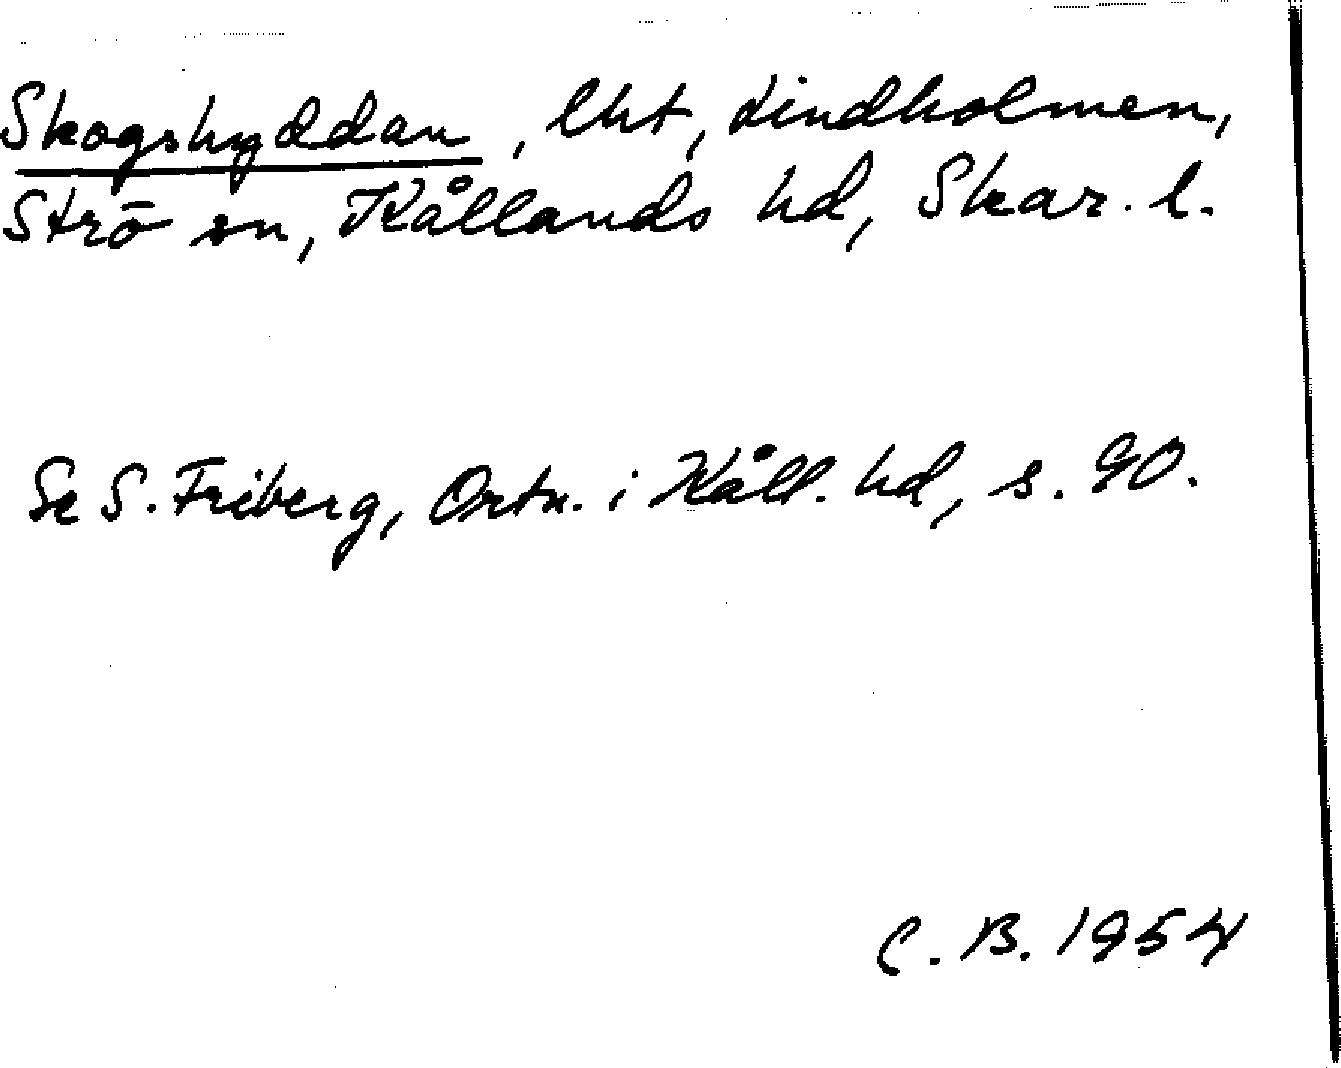 Skogshyddan, lht, Lindholmen,
Strö sn, Kållands hd, Skar. l.
Se S. Friberg, Ortn. i Kåll. hd, s. 90.
C. B. 1954